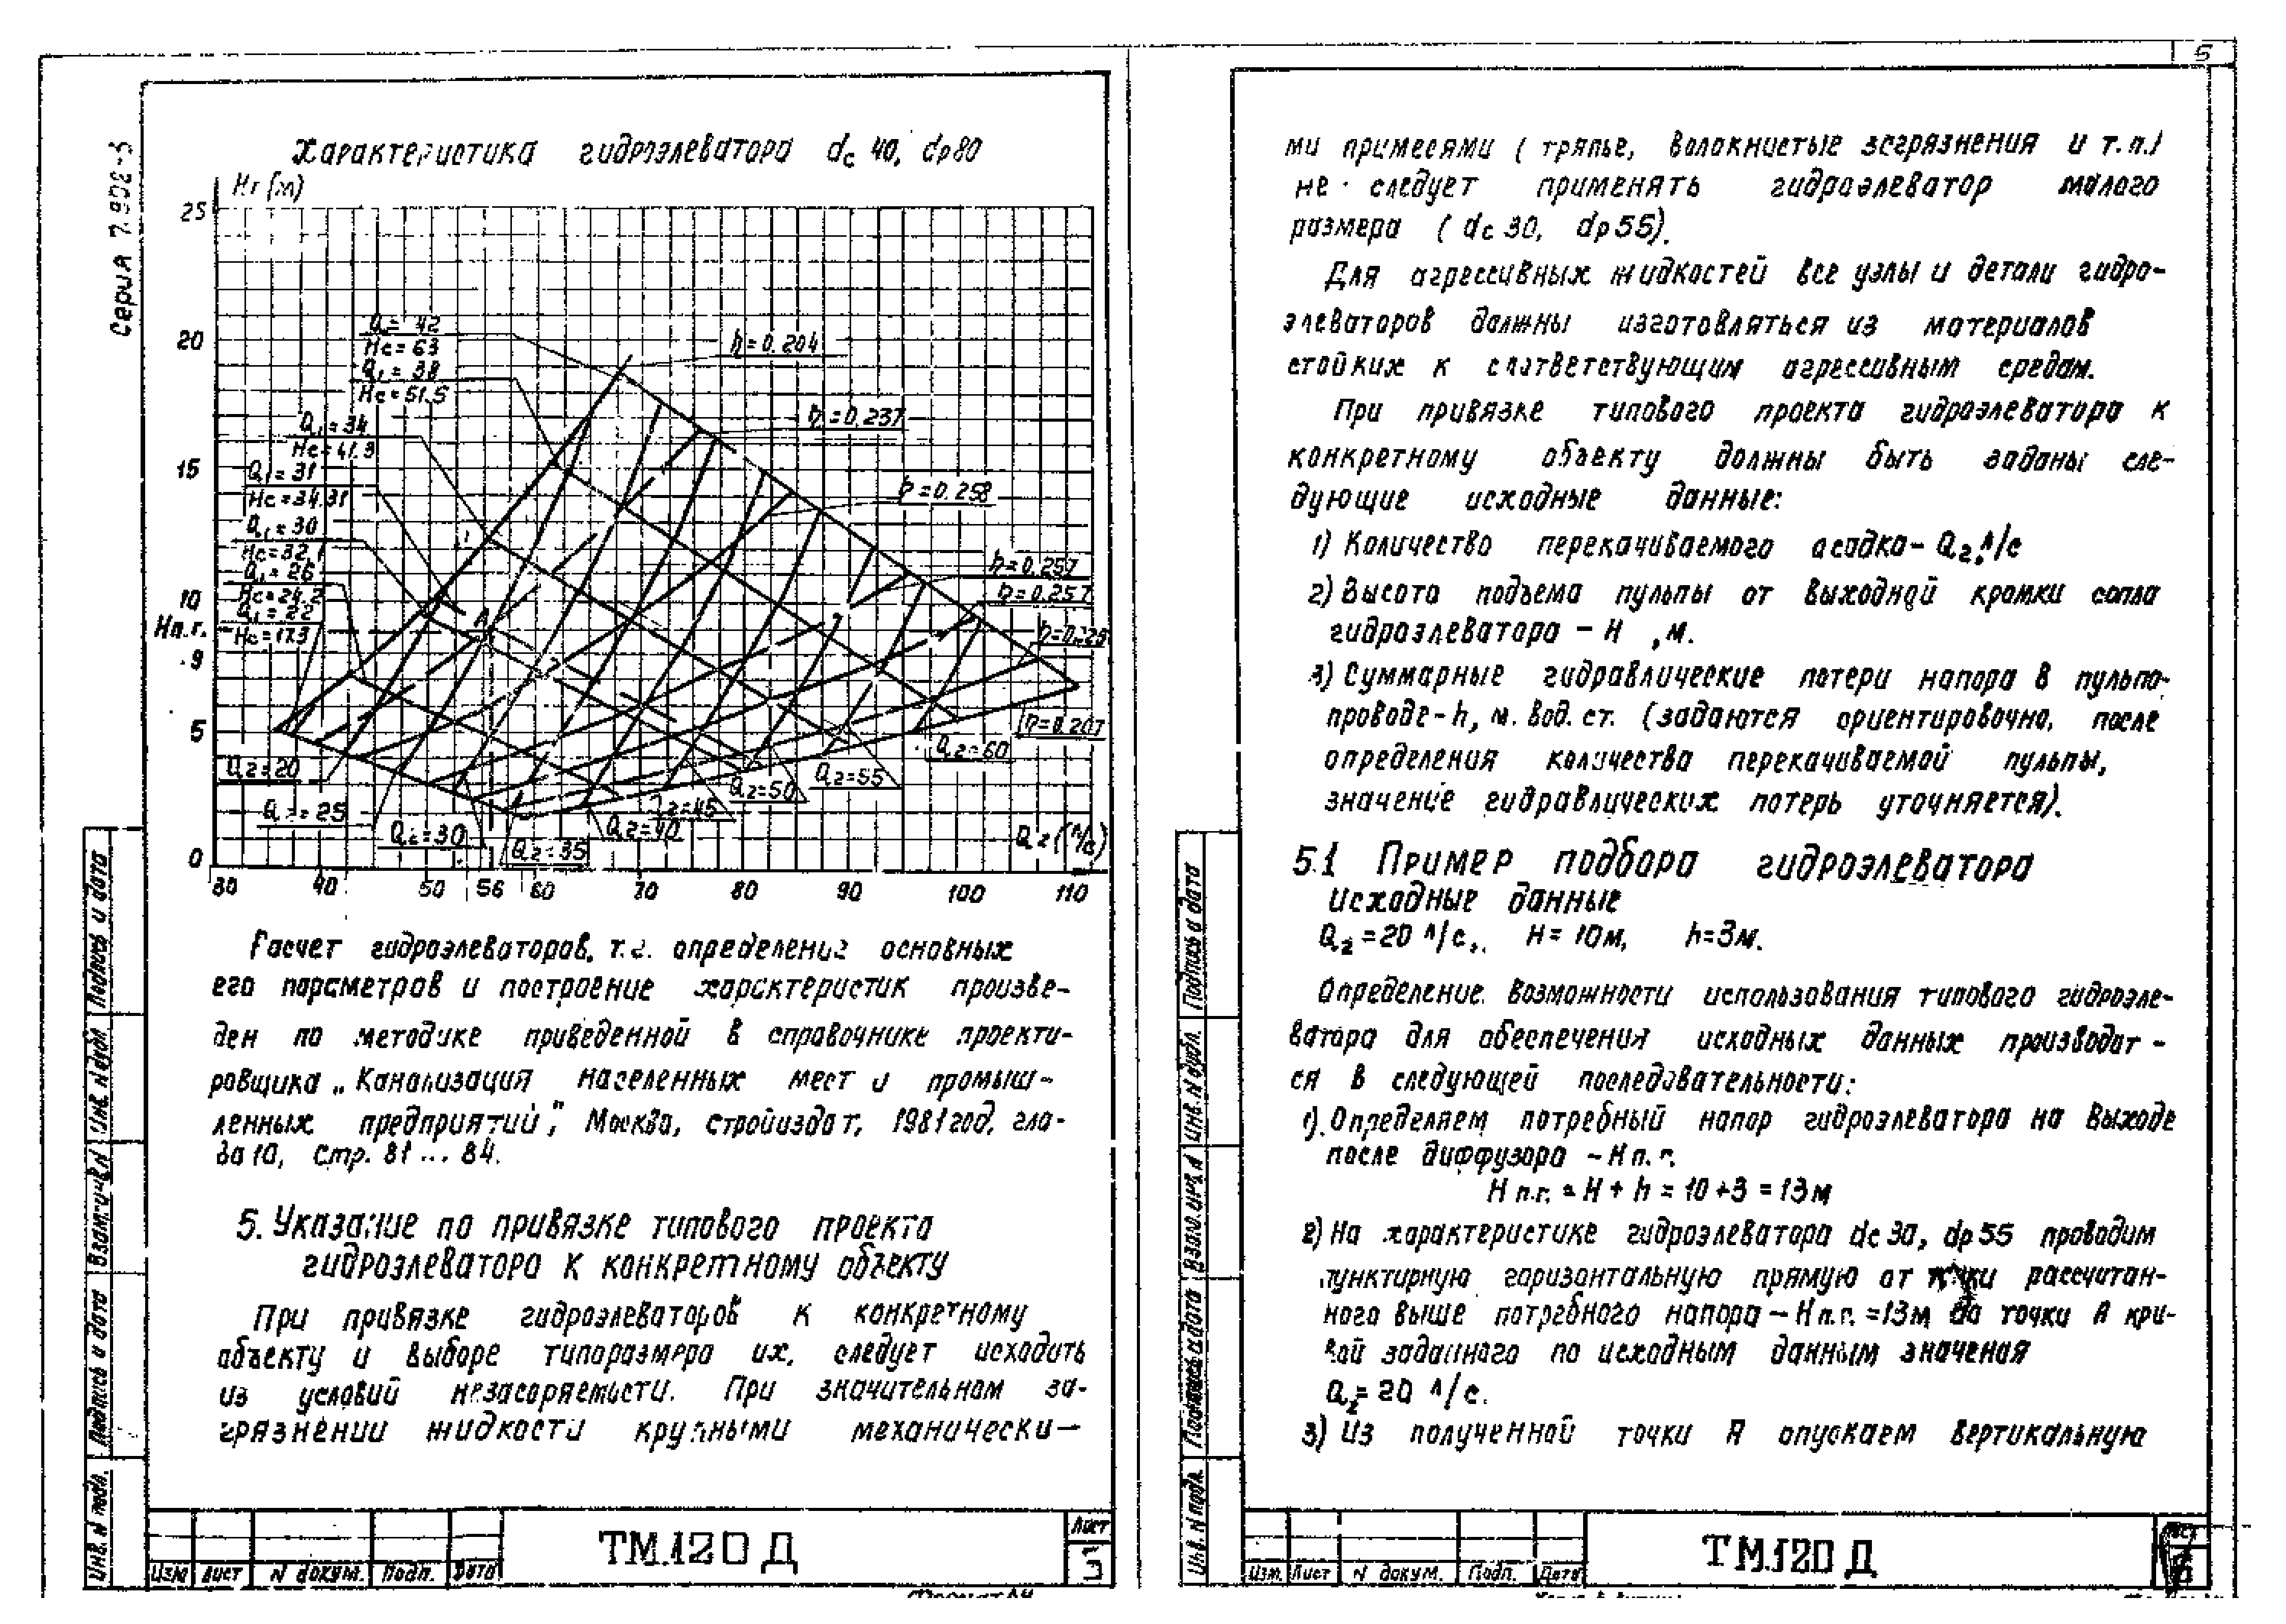 5
Серия 7.902-3
Характеристика гидроэлеватора dс 40, dр80
Нг (м)
25
20
15
10
Нп.г.
9
5
0
Q₁= 42
Нс=63
Q₁= 38
Нс=51.5
Q₁=34
Нс=41.3
Q₁=31
Нс=34.31
Q₁=30
Нс=32,1
Q₁=26
Нс=24.2
Q₁=22
Нс=17.3
η=0.204
η=0.237
η=0.258
η=0.257
η=0.257
η=0.207
А
Q2=20
Q2=25
Q2=30
Q2=35
Q2=40
Q2=45
Q2=50
Q2=55
Q2=60
Q г (л/с)
30 40 50 56 60 70 80 90 100 110
Расчет гидроэлеваторов, т.е. определение основных
его параметров и построение характеристик произве-
ден по методике приведенной в справочнике проекти-
ровщика „Канализация населенных мест и промыш-
ленных предприятий", Москва, стройиздат, 1981год, гла-
ва 10, стр. 81 ... 84.
5. Указание по привязке типового проекта
гидроэлеватора к конкретному объекту
При привязке гидроэлеваторов к конкретному
объекту и выборе типоразмера их, следует исходить
из условий незасоряемости. При значительном за-
грязнении жидкости крупными механически-
Инв. N подл. Подпись и дата Взам. инв. N Инв. N дубл. Подпись и дата
Изм Лист N докум. Подп. Дата
ТМ.120 Д
Лист
5
ми примесями ( тряпье, волокнистые загрязнения и т.п.)
не следует применять гидроэлеватор малого
размера ( dс 30, dр55).
Для агрессивных жидкостей все узлы и детали гидро-
элеваторов должны изготовляться из материалов
стойких к соответствующим агрессивным средам.
При привязке типового проекта гидроэлеватора к
конкретному объекту должны быть заданы сле-
дующие исходные данные:
1) Количество перекачиваемого осадка- Q₂, л/с
2) Высота подъема пульпы от выходной кромки сопла
гидроэлеватора - Н ,м.
3) Суммарные гидравлические потери напора в пульпо-
проводе-h, м. вод. ст. (задаются ориентировочно, после
определения количества перекачиваемой пульпы,
значение гидравлических потерь уточняется).
5.1 Пример подбора гидроэлеватора
Исходные данные
Q₂ =20 л/с, Н= 10м, h=3м.
Определение возможности использования типового гидроэле-
ватора для обеспечения исходных данных производит-
ся в следующей последовательности:
1). Определяем потребный напор гидроэлеватора на выходе
после диффузора -Нп.г.
Нп.г. = Н + h = 10 +3 = 13м
2) На характеристике гидроэлеватора dс 30, dр 55 проводим
пунктирную горизонтальную прямую от точки рассчитан-
ного выше потребного напора - Нп.г. =13м до точки А кри-
вой заданного по исходным данным значения
Q₂= 20 л/с.
3) Из полученной точки А опускаем вертикальную
Инв. N подл. Подпись и дата Взам. инв. N Инв. N дубл. Подпись и дата
Изм. Лист N докум. Подп. Дата
ТМ.120 Д